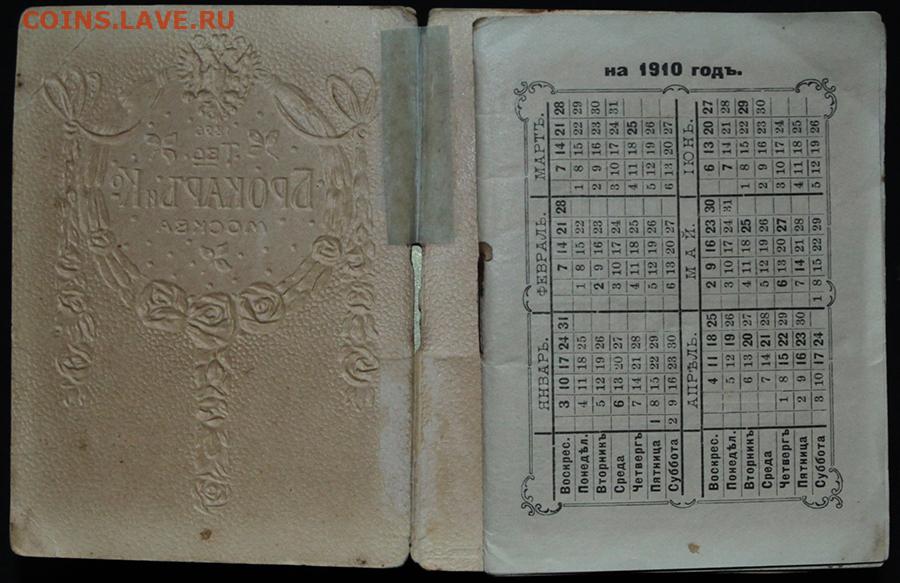 COINS.LAVE.RU
БРОКАРЪ и К°
МОСКВА
на 1910 годъ.
ЯНВАРЬ. ФЕВРАЛЬ. МАРТЪ.
Воскрес. 3 10 17 24 31 7 14 21 28 7 14 21 28
Понедѣл. 4 11 18 25 1 8 15 22 1 8 15 22 29
Вторникъ 5 12 19 26 2 9 16 23 2 9 16 23 30
Среда 6 13 20 27 3 10 17 24 3 10 17 24 31
Четвергъ 7 14 21 28 4 11 18 25 4 11 18 25
Пятница 1 8 15 22 29 5 12 19 26 5 12 19 26
Суббота 2 9 16 23 30 6 13 20 27 6 13 20 27
АПРѢЛЬ. МАЙ. ІЮНЬ.
Воскрес. 4 11 18 25 2 9 16 23 30 6 13 20 27
Понедѣл. 5 12 19 26 3 10 17 24 31 7 14 21 28
Вторникъ 6 13 20 27 4 11 18 25 1 8 15 22 29
Среда 7 14 21 28 5 12 19 26 2 9 16 23 30
Четвергъ 1 8 15 22 29 6 13 20 27 3 10 17 24
Пятница 2 9 16 23 30 7 14 21 28 4 11 18 25
Суббота 3 10 17 24 1 8 15 22 29 5 12 19 26